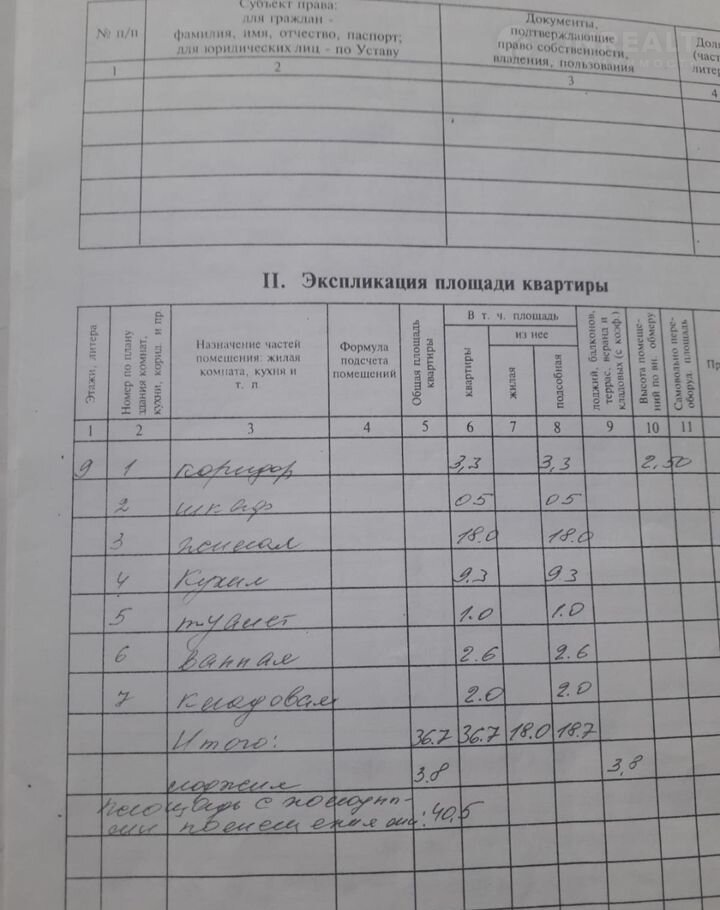 Субъект права:
для граждан -
фамилия, имя, отчество, паспорт;
для юридических лиц - по Уставу
№ п/п
Документы,
подтверждающие
право собственности,
владения, пользования
REALT
1 2 3 4
II. Экспликация площади квартиры
Этажи, литера
Номер по плану
здания комнат,
кухни, корид. и пр.
Назначение частей
помещения: жилая
комната, кухня и
т. п
Формула
подсчета
помещений
Общая площадь
квартиры
В т. ч. площадь
квартиры
из нее
жилая
подсобная
лоджий, балконов,
террас, веранд и
кладовых (с коэф.)
Высота помеще-
ний по вн. обмеру
Самовольно пере-
оборуд. площадь
1 2 3 4 5 6 7 8 9 10 11
9 1 коридор 3,3 3,3 2.50
2 шкаф 05 05
3 жилая 18.0 18.0
4 Кухня 9.3 93
5 туалет 1.0 1.0
6 Ванная 2.6 2.6
7 Кладовая 2.0 2.0
Итого: 36.7 36.7 18.0 18.7
лоджия 3.8 3,8
площадь с холодны-
ми помещениями: 40,5